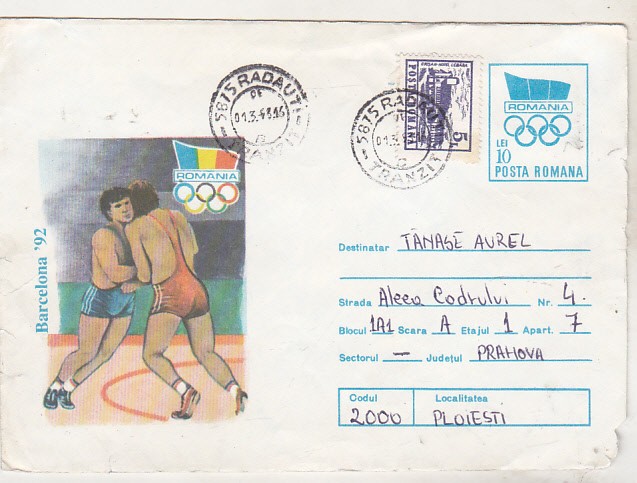 5875 RADAUTI
01.3.
TRANZIT
5875 RADAUTI
01.3.
TRANZIT
POSTA ROMANA
5L
ROMANIA
LEI
10
POSTA ROMANA
ROMANIA
Barcelona '92
Destinatar TĂNASE AUREL
Strada Aleea Codrului Nr. 4.
Blocul 1A1 Scara A Etajul 1 Apart. 7
Sectorul — Județul PRAHOVA
Codul Localitatea
2000 PLOIESTI